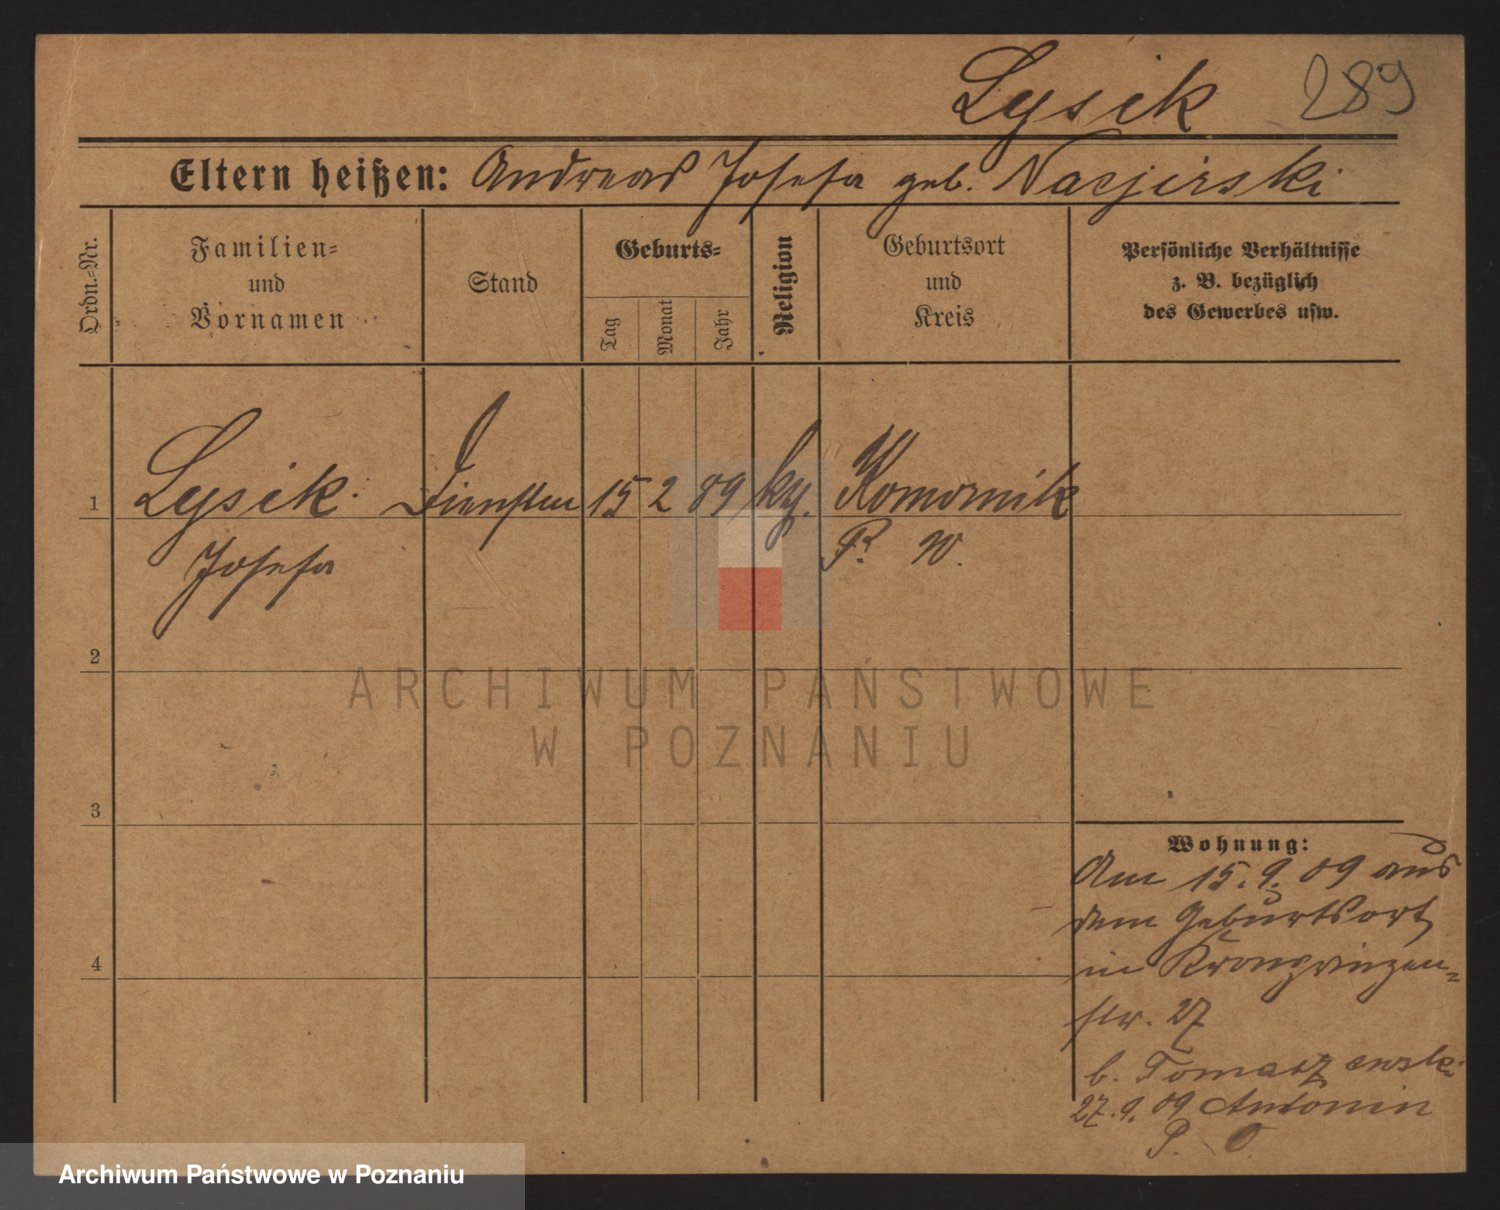 Lysik 289
Eltern heißen: Andreas Josefa geb. Nacjerski
Ordn.-Nr.
Familien-
und
Vornamen
Stand
Geburts-
Tag
Monat
Jahr
Religion
Geburtsort
und
Kreis
Persönliche Verhältnisse
z. B. bezüglich
des Gewerbes usw.
1 Lysik Dienstm 15 2 89 kg. Komornik
Josefa P. W.
2
ARCHIWUM PAŃSTWOWE
W POZNANIU
3
Wohnung:
Am 15.9.09 aus
dem Geburtsort
in Kronprinzen-
str. 27
b. Tomaszewski
27.9.09 Antonin
P. O.
4
Archiwum Państwowe w Poznaniu